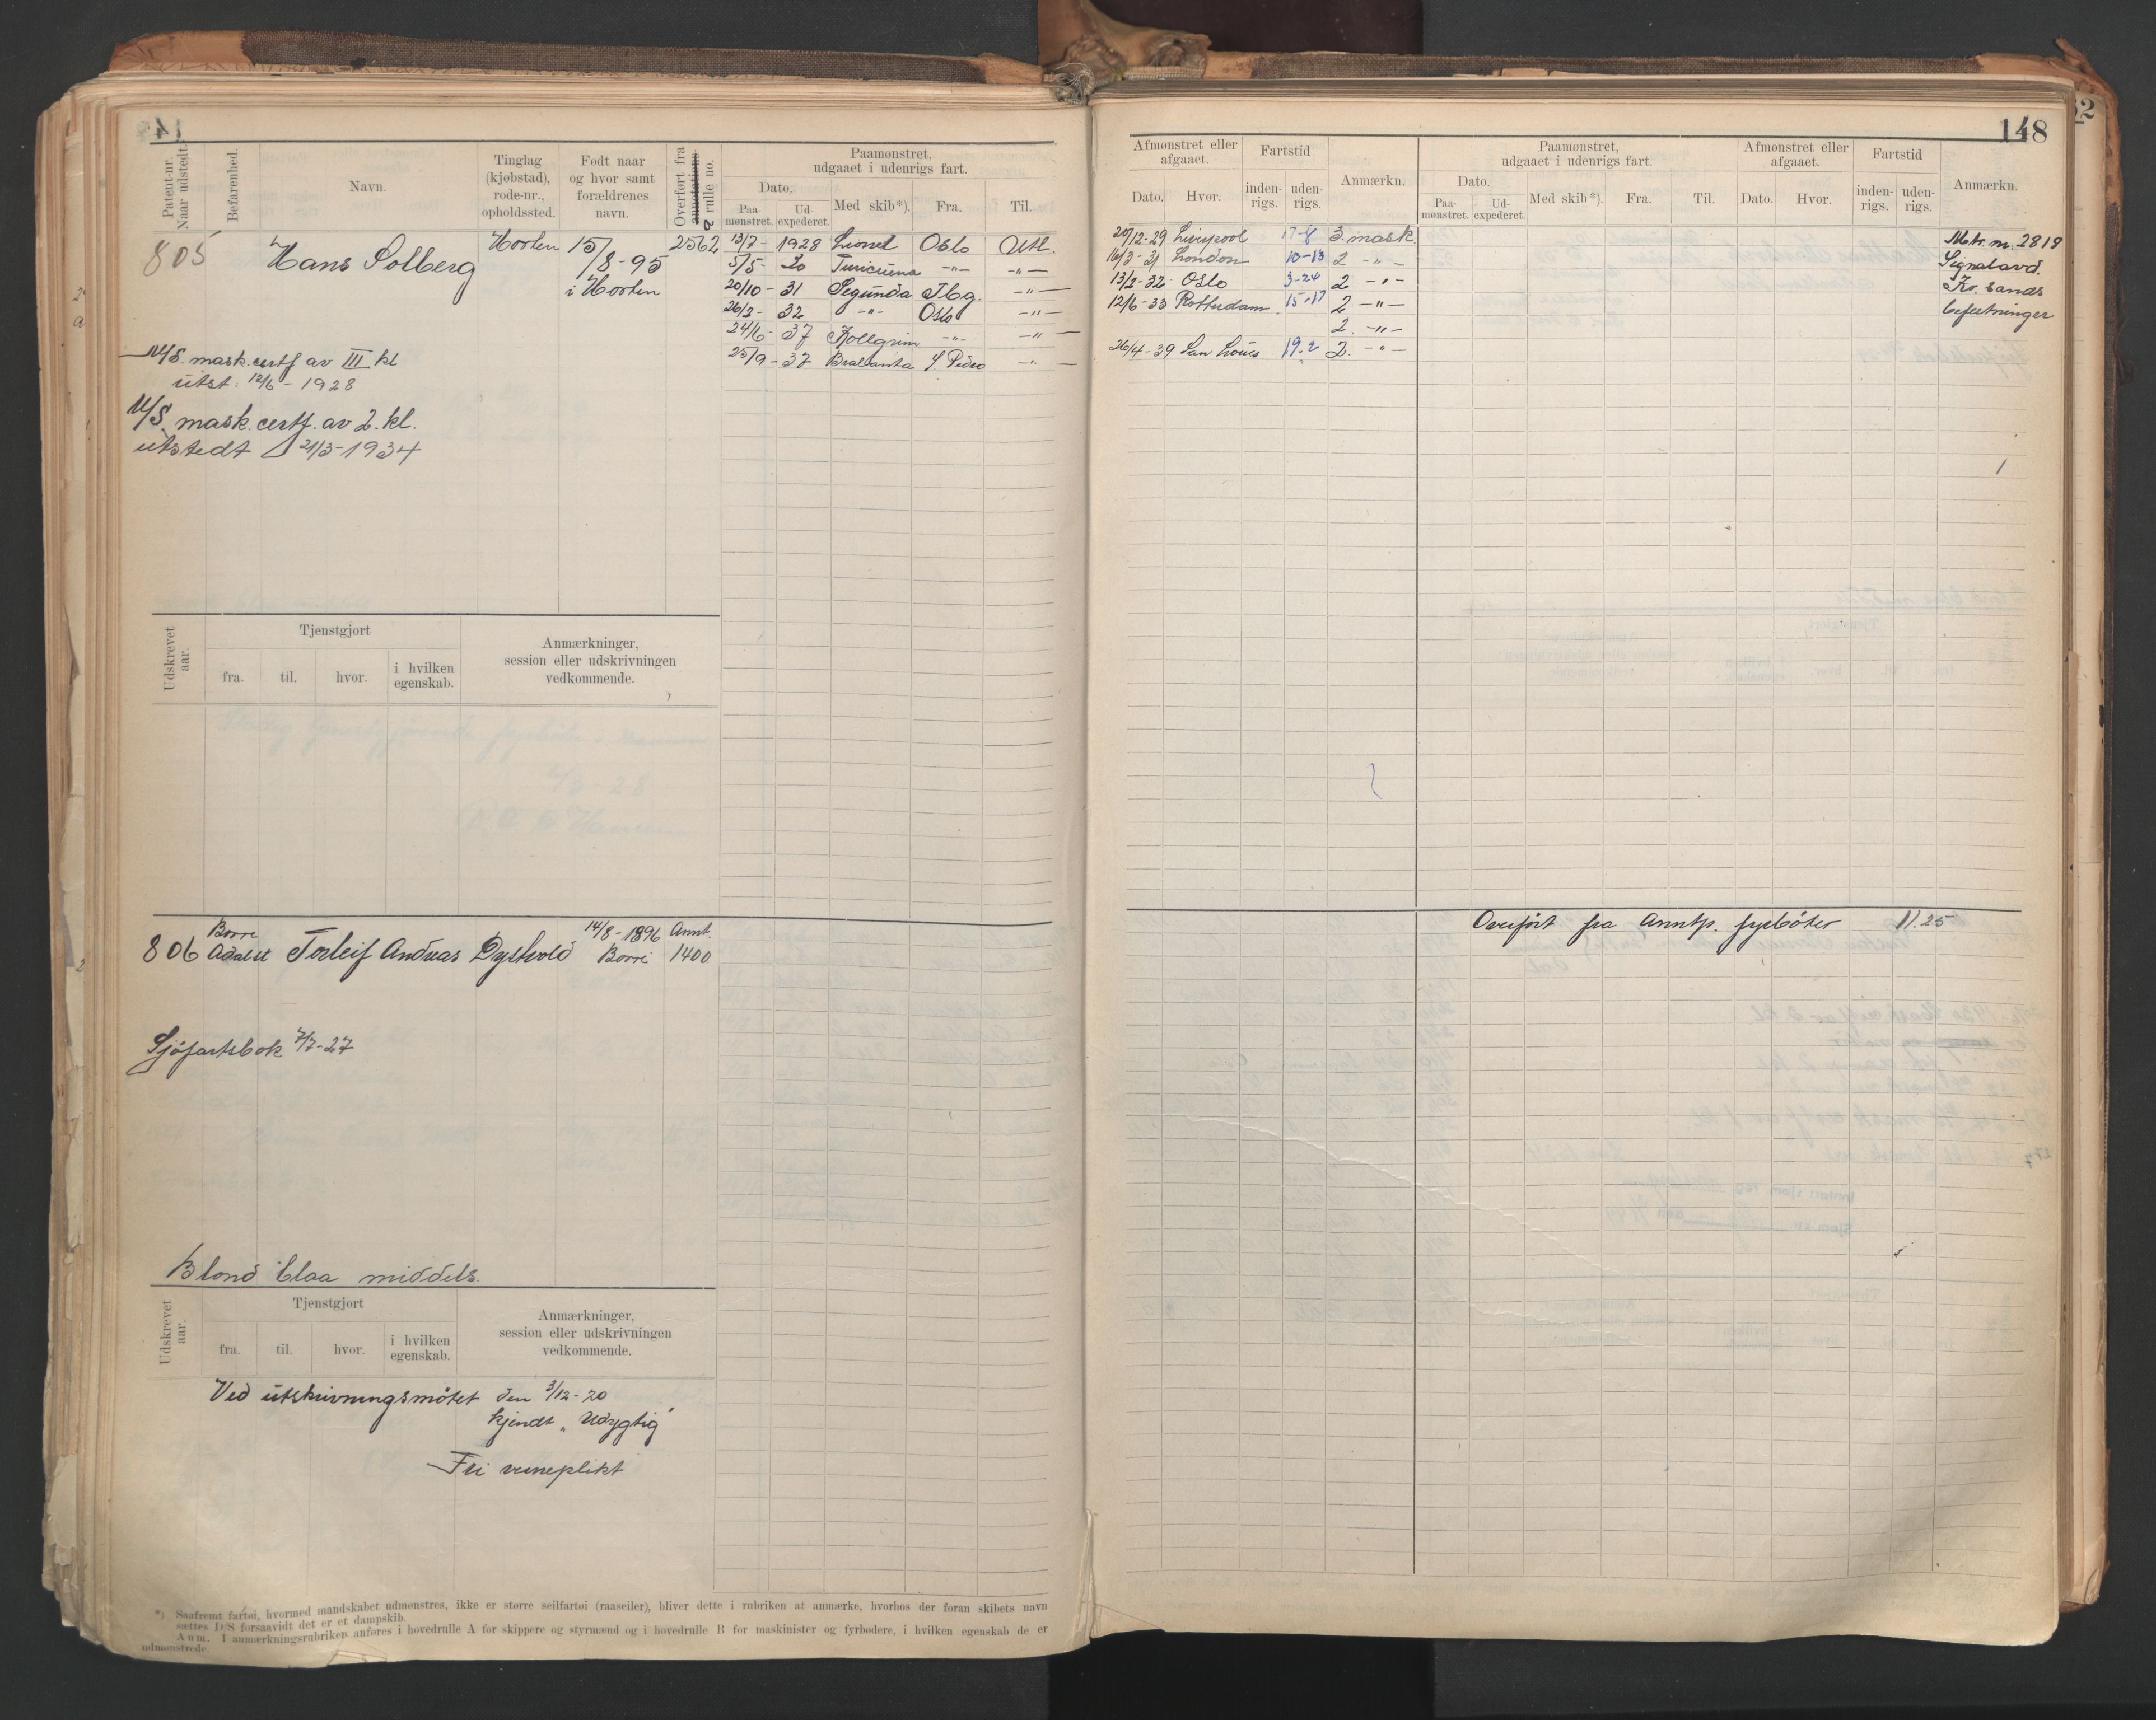 148
Patent-nr. Naar udstedt.
Befarenhed.
Navn.
Tinglag (kjøbstad), rode-nr., opholdssted.
Født naar og hvor samt forældrenes navn.
Overført fra annotations rulle no.
Paamønstret, udgaaet i udenrigs fart.
Dato.
Paa-mønstret.
Ud-expederet.
Med skib*).
Fra.
Til.
805 Hans Solberg Horten 15/8-95 i Horten 2562
13/7- 1928 Lionel Oslo Utl.
5/5- 30 -"- -"-
20/10- 31 Segunda Tbg. -"-
26/2- 32 -"- Oslo -"-
24/6- 37 Kollgrim -"- -"-
25/9- 37 Brabanta S Pedro -"-
M/S. mask. certf av III kl
utst. 12/6-1928
M/S. mask. certf. av 2. kl.
utstedt 21/3-1934
Udskrevet aar.
Tjenstgjort
fra.
til.
hvor.
i hvilken egenskab.
Anmærkninger, session eller udskrivningen vedkommende.
806 Borre Adalst Torleif Andreas Dyskvold 14/8-1896 Borre Annt. 1400
Sjøfartsbok 7/7-27
Blond blaa middels.
Udskrevet aar.
Tjenstgjort
fra.
til.
hvor.
i hvilken egenskab.
Anmærkninger, session eller udskrivningen vedkommende.
Ved utskrivningsmötet den 3/12-20
kjendt „Udygtig"
Fri verneplikt
*) Saafremt fartøi, hvormed mandskabet udmønstres, ikke er større seilfartøi (raaseiler), bliver dette i rubriken at anmærke, hvorhos der foran skibets navn
sættes D/S forsaavidt det er et dampskib.
Anm. I anmærkningsrubriken anføres i hovedrulle A for skippere og styrmænd og i hovedrulle B for maskinister og fyrbødere, i hvilken egenskab de er
udmønstrede.
Afmønstret eller afgaaet.
Dato.
Hvor.
Fartstid
inden-rigs.
uden-rigs.
Anmærkn.
Paamønstret, udgaaet i udenrigs fart.
Dato.
Paa-mønstret.
Ud-expederet.
Med skib*).
Fra.
Til.
Afmønstret eller afgaaet.
Dato.
Hvor.
Fartstid
inden-rigs.
uden-rigs.
Anmærkn.
20/12-29 Liverpool 17-8 3. mask.
16/3-31 London 10-13 2 -"-
13/2-32 Oslo 3-24 2 -"-
12/6-33 Rotterdam 15-17 2 -"-
2. -"-
26/4-39 San Louis 19-2 2. -"-
Mtr. nr. 2818
Signalavd.
Kr. sands
befestninger
Overført fra Anntp. fyrböter 11.25